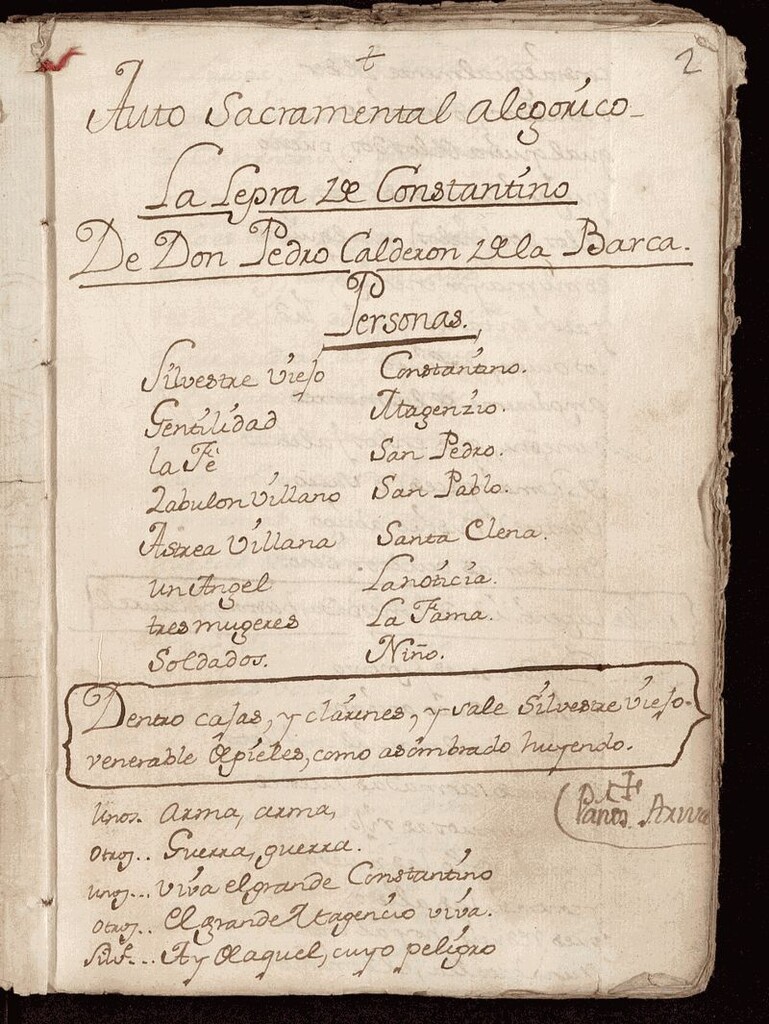 +
2
Auto Sacramental Alegorico
La Lepra de Constantino
De Don Pedro Calderon de la Barca.
Personas.
Silvestre Viejo Constantino.
Gentilidad Magenzio.
la Fè San Pedro.
Zabulon Villano San Pablo.
Astrea Villana Santa Elena.
un Angel La noticia.
tres mugeres La Fama.
Soldados. Niño.
Dentro cajas, y clarines, y sale Silvestre Viejo
venerable de pieles, como asombrado huyendo.
Unos. Arma, arma,
Otros.. Guerra, guerra.
Unos... Viva el grande Constantino
Otros.. El grande Magencio viva.
Silv... Ay de aquel, cuyo peligro